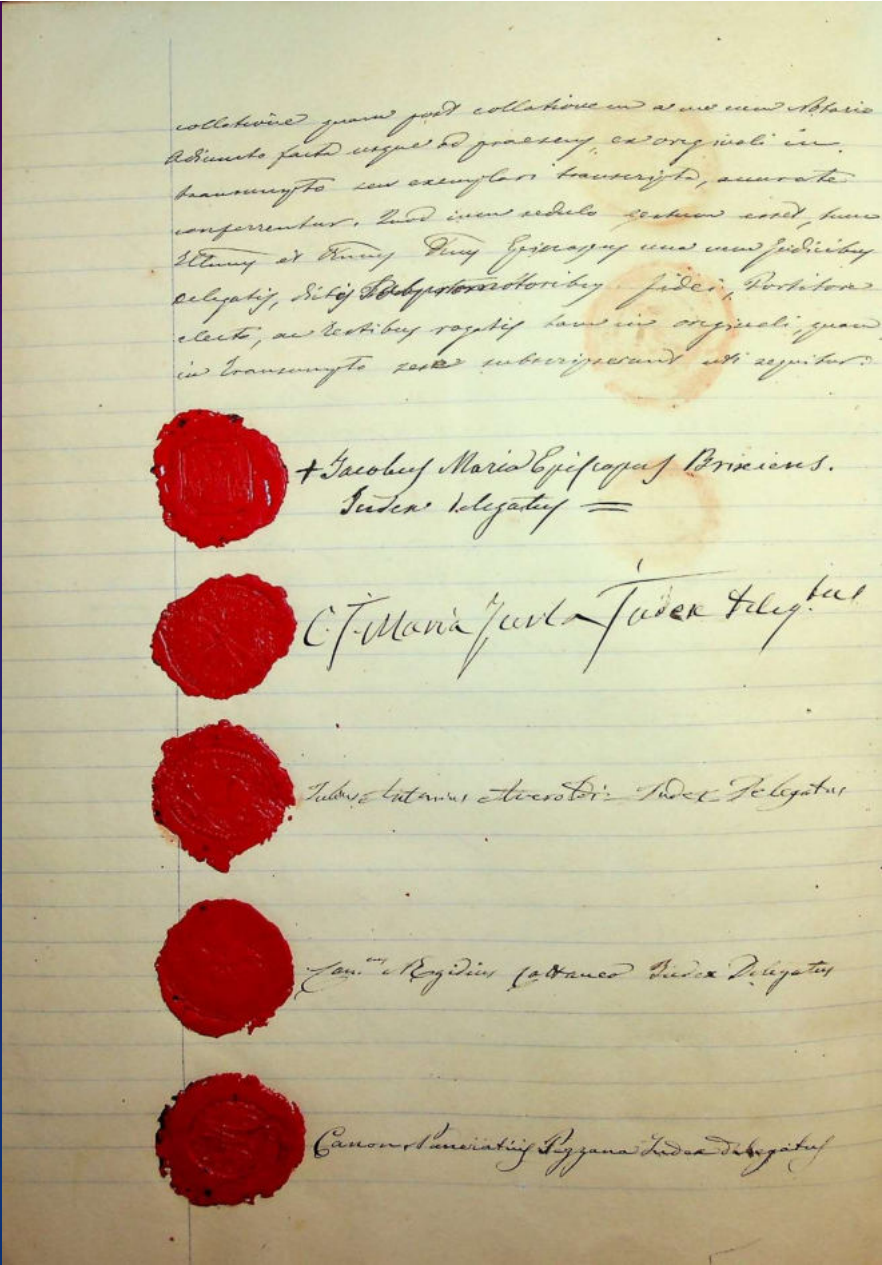 collatione quam post collationem a me cum Notario
Adiuncto facta usque ad praesens, ex originali in
transumpto seu exemplari transcripta, accurate
conferrentur. Quod cum sedulo gestum esset, tum
Illmus et Rmus Dnus Episcopus una cum Judicibus
delegatis, dictis Subpromotoribus fidei, Portitore
electo, ac Testibus rogatis tam in originali, quam
in Transumpto sese subscripserunt uti sequitur:
+ Jacobus Maria Episcopus Brixiens.
Judex delegatus =
C. J. Maria Judex Deleg.tus
Julius Antonius Averoldi Judex Delegatus
Can.cus Aegidius Cattaneo Judex Delegatus
Canon. Pancratius Pezzana Judex Delegatus